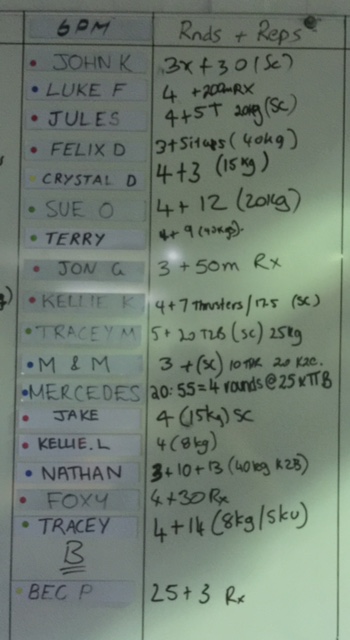 6PM Rnds + Reps
JOHN K 3x + 30 (SC)
LUKE F 4 +200m RX
JULES 4+5T 20kg (SC)
FELIX D 3+Situps (40kg)
CRYSTAL D 4+3 (15kg)
SUE O 4+12 (20kg)
TERRY 4+9 (40kgs).
JON G 3 +50m Rx
KELLIE K 4+7 Thrusters/17.5 (SC)
TRACEY M 5+20 T2B (SC) 25kg
M & M 3 +(SC) 20 K2C.
MERCEDES 20:55=4 rounds@25
JAKE 4 (15kg) SC
KELLIE.L 4 (8kg)
NATHAN 3+10+13 (40kg K2B)
FOXY 4+30 Rx
TRACEY 4+14 (8kg/
B
BEC P 25+3 Rx